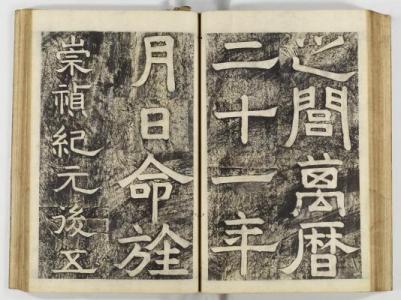 之閭萬曆
二十一年
月日命旌
崇禎紀元後五